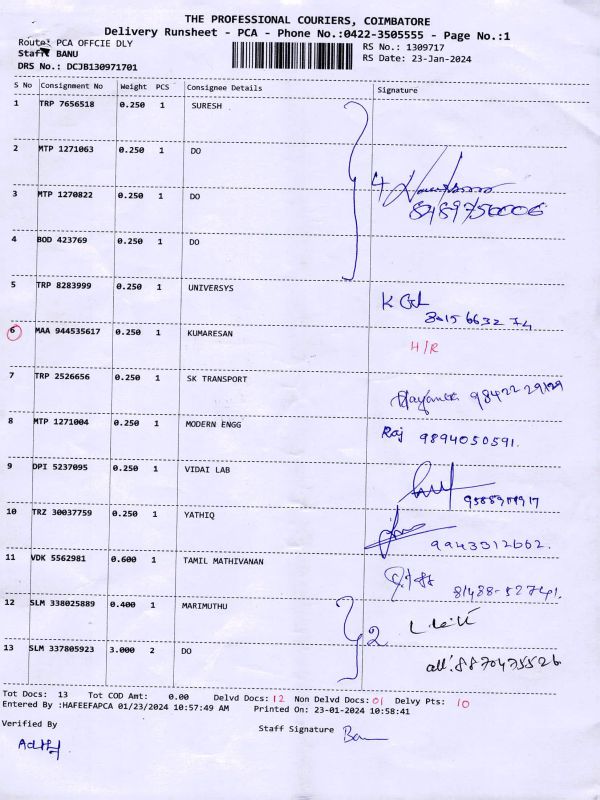 THE PROFESSIONAL COURIERS, COIMBATORE
Delivery Runsheet - PCA - Phone No.:0422-3505555 - Page No.:1
Route: PCA OFFCIE DLY RS No.: 1309717
Staff: BANU RS Date: 23-Jan-2024
DRS No.: DCJB130971701
S No Consignment No Weight PCS Consignee Details Signature
1 TRP 7656518 0.250 1 SURESH
2 MTP 1271063 0.250 1 DO
4
3 MTP 1270822 0.250 1 DO
8489750006
4 BOD 423769 0.250 1 DO
5 TRP 8283999 0.250 1 UNIVERSYS
6 MAA 944535617 0.250 1 KUMARESAN H/R
7 TRP 2526656 0.250 1 SK TRANSPORT
98422 29129
8 MTP 1271004 0.250 1 MODERN ENGG Raj 9894050591.
9 DPI 5237095 0.250 1 VIDAI LAB
10 TRZ 30037759 0.250 1 YATHIQ
9943312662.
11 VDK 5562981 0.600 1 TAMIL MATHIVANAN
12 SLM 338025889 0.400 1 MARIMUTHU
2
13 SLM 337805923 3.000 2 DO 8870475526
Tot Docs: 13 Tot COD Amt: 0.00 Delvd Docs: 12 Non Delvd Docs: 01 Delvy Pts: 10
Entered By :HAFEEFAPCA 01/23/2024 10:57:49 AM Printed On: 23-01-2024 10:58:41
Verified By Staff Signature